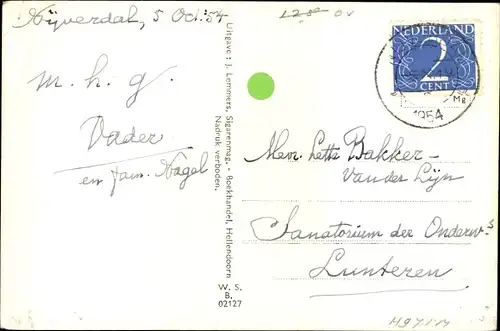 Nijverdal, 5 Oct. '54
m. h. g.
Vader
en fam. Nagel
Uitgave: J. Lemmers, Sigarenmag. - Boekhandel, Hellendoorn
Nadruk verboden.
W. S.
B.
02127
NEDERLAND
2
CENT
1954
Mevr. Lette Bakker-
Van der Lijn
Sanatorium der Onderw.s
Lunteren